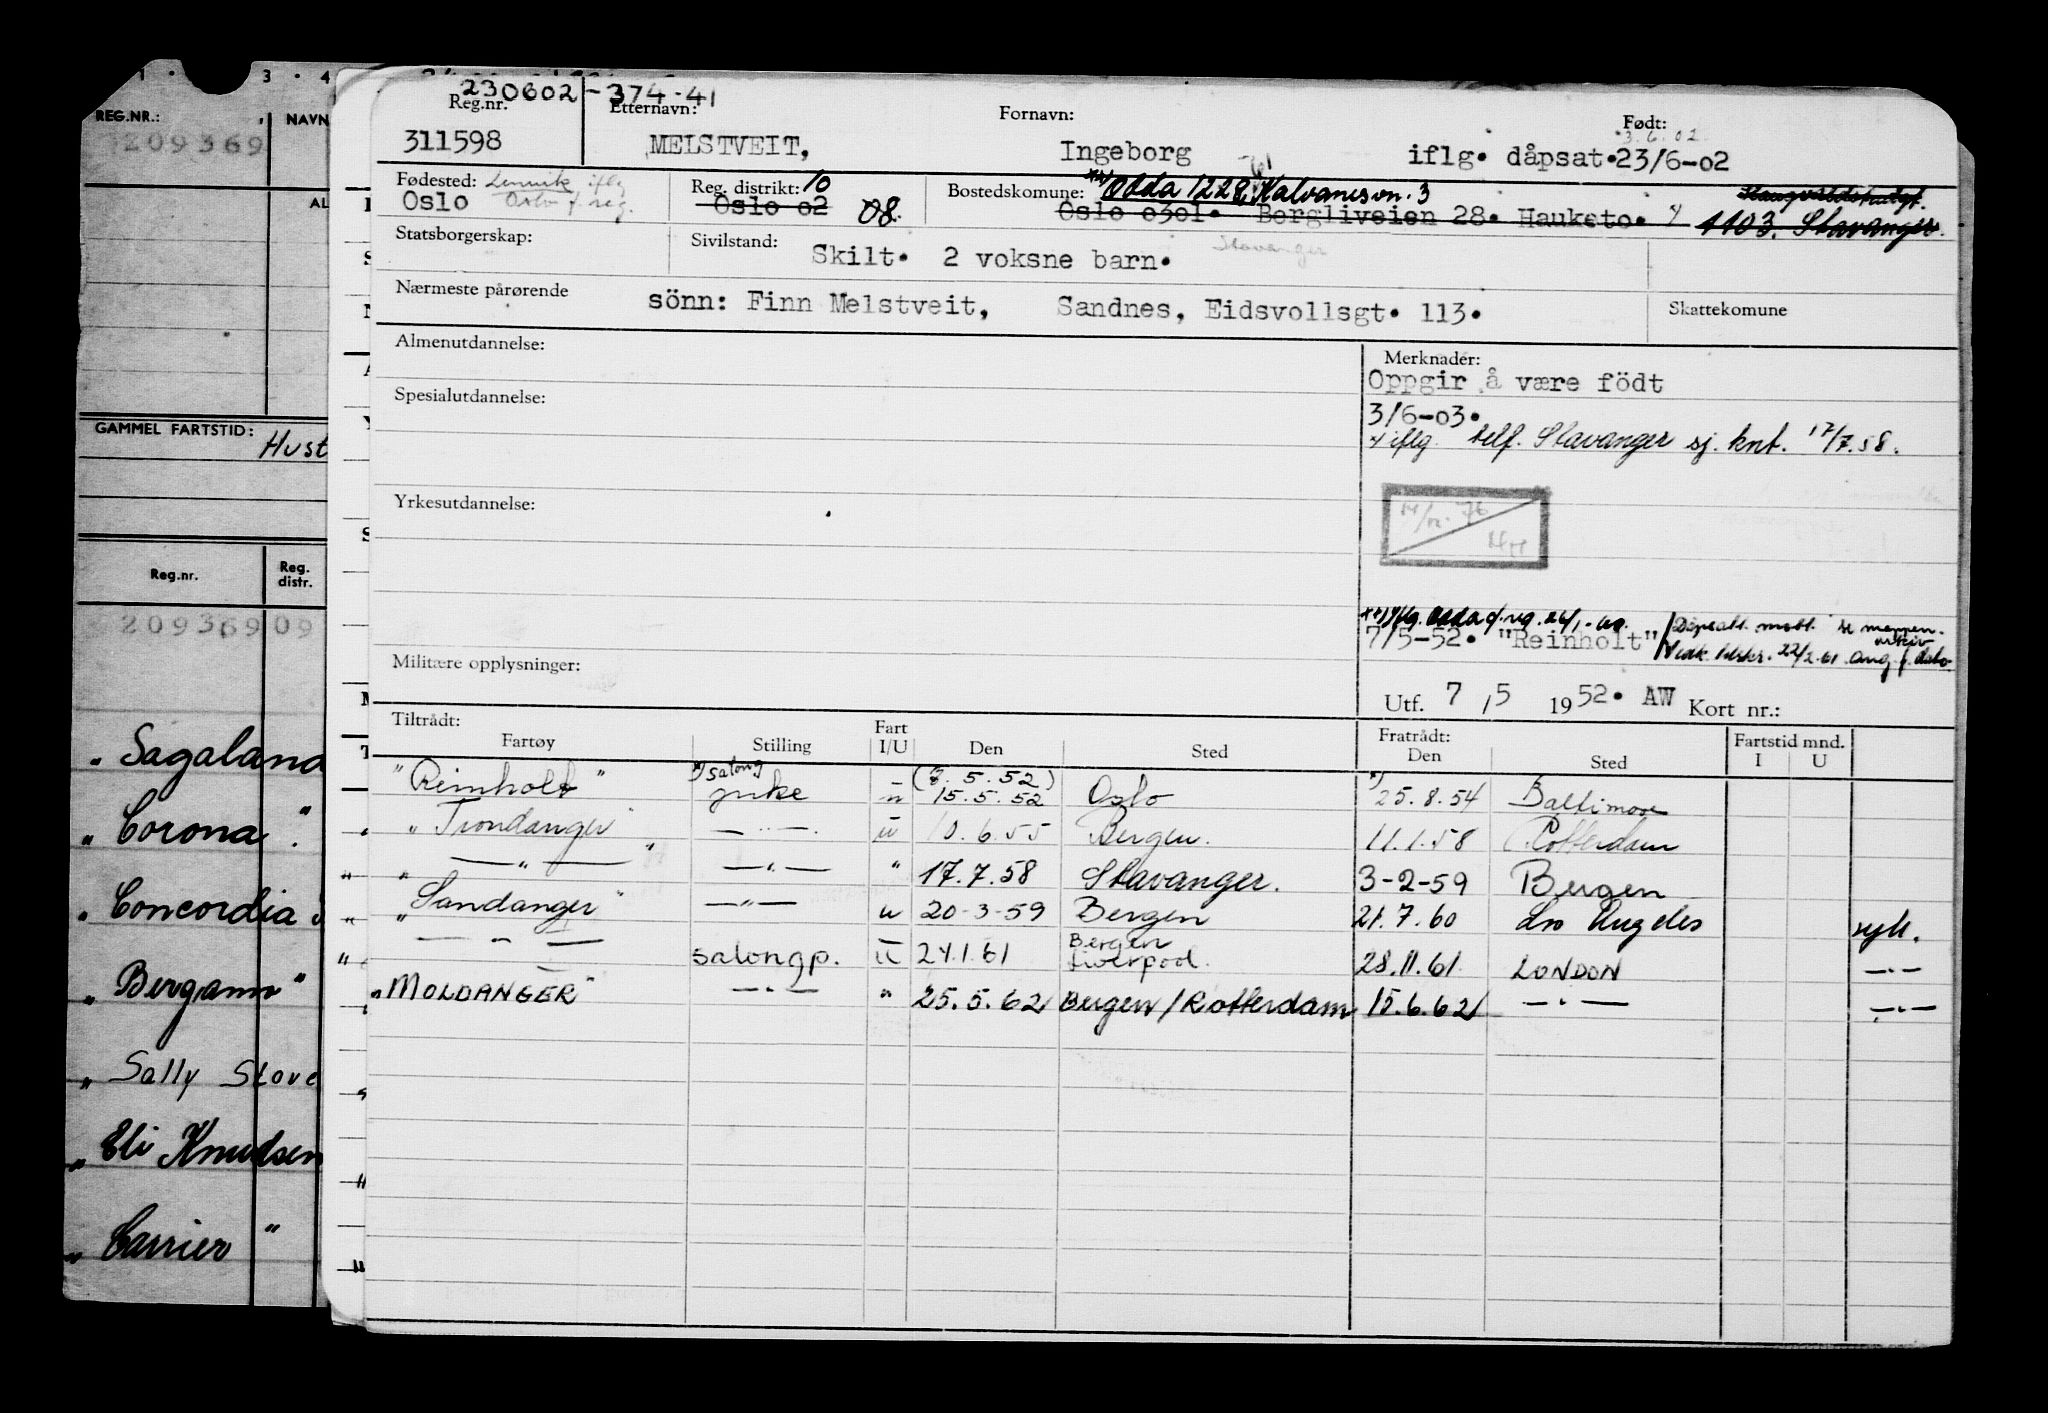 1 · 3 · 4
REG.NR.:
NAVN
209369
AL
GAMMEL FARTSTID:
Hust
Reg.nr.
Reg. distr.
209369 09
" Sagaland
" Corona ".
" Concordia
" Bergamo "
" Sally Stove
" Eli Knudsen
" Carrier "
230602-374-41
Reg.nr. Etternavn: Fornavn: Født:
3.6.02.
311598 MELSTVEIT, Ingeborg iflg. dåpsat. 23/6-02
Fødested: Lenvik iflg Reg. distrikt: 10 Bostedskomune: xx) Odda 1228, Kalvanesvn. 3
Oslo Oslo f. reg. Oslo 02 08. Oslo 0301. Bergliveien 28. Hauketo. x 1103. Stavanger.
Statsborgerskap: Sivilstand: Stavanger
Skilt. 2 voksne barn.
Nærmeste pårørende sönn: Finn Melstveit, Sandnes, Eidsvollsgt. 113. Skattekomune
Almenutdannelse: Merknader:
Oppgir å være födt
Spesialutdannelse: 3/6-03.
x iflg telf. Stavanger sj. knt. 17/7.58.
Yrkesutdannelse:
14/12. 76
HH
xx) iflg. Odda f. reg. 26/1-60.
7/5-52. "Reinholt" Dåpsatt. mott. se mappen. arkiv
22/2-61 ang. f. Oslo
Militære opplysninger:
Utf. 7 / 5 1952. AW Kort nr.:
Tiltrådt: Fart Fratrådt: Fartstid mnd.
Fartøy Stilling I/U Den Sted Den Sted I U
"Reinholt" x) salong (7.5.52)
pike u 15.5.52 Oslo x) 25.8.54 Baltimore
" Trondanger " — " — u 10.6.55 Bergen. 11.1.58 Rotterdam
" — " — " — " — " 17.7.58 Stavanger. 3-2-59 Bergen
" " Sandanger " — " — u 20-3-59 Bergen 21.7.60 Los Angeles syk.
" — " — salongp. u 24.1.61 Bergen Liverpool. 28.11.61 LONDON — " —
" MOLDANGER" — " — " 25.5.62 Bergen/Rotterdam 15.6.62 — " — — " —